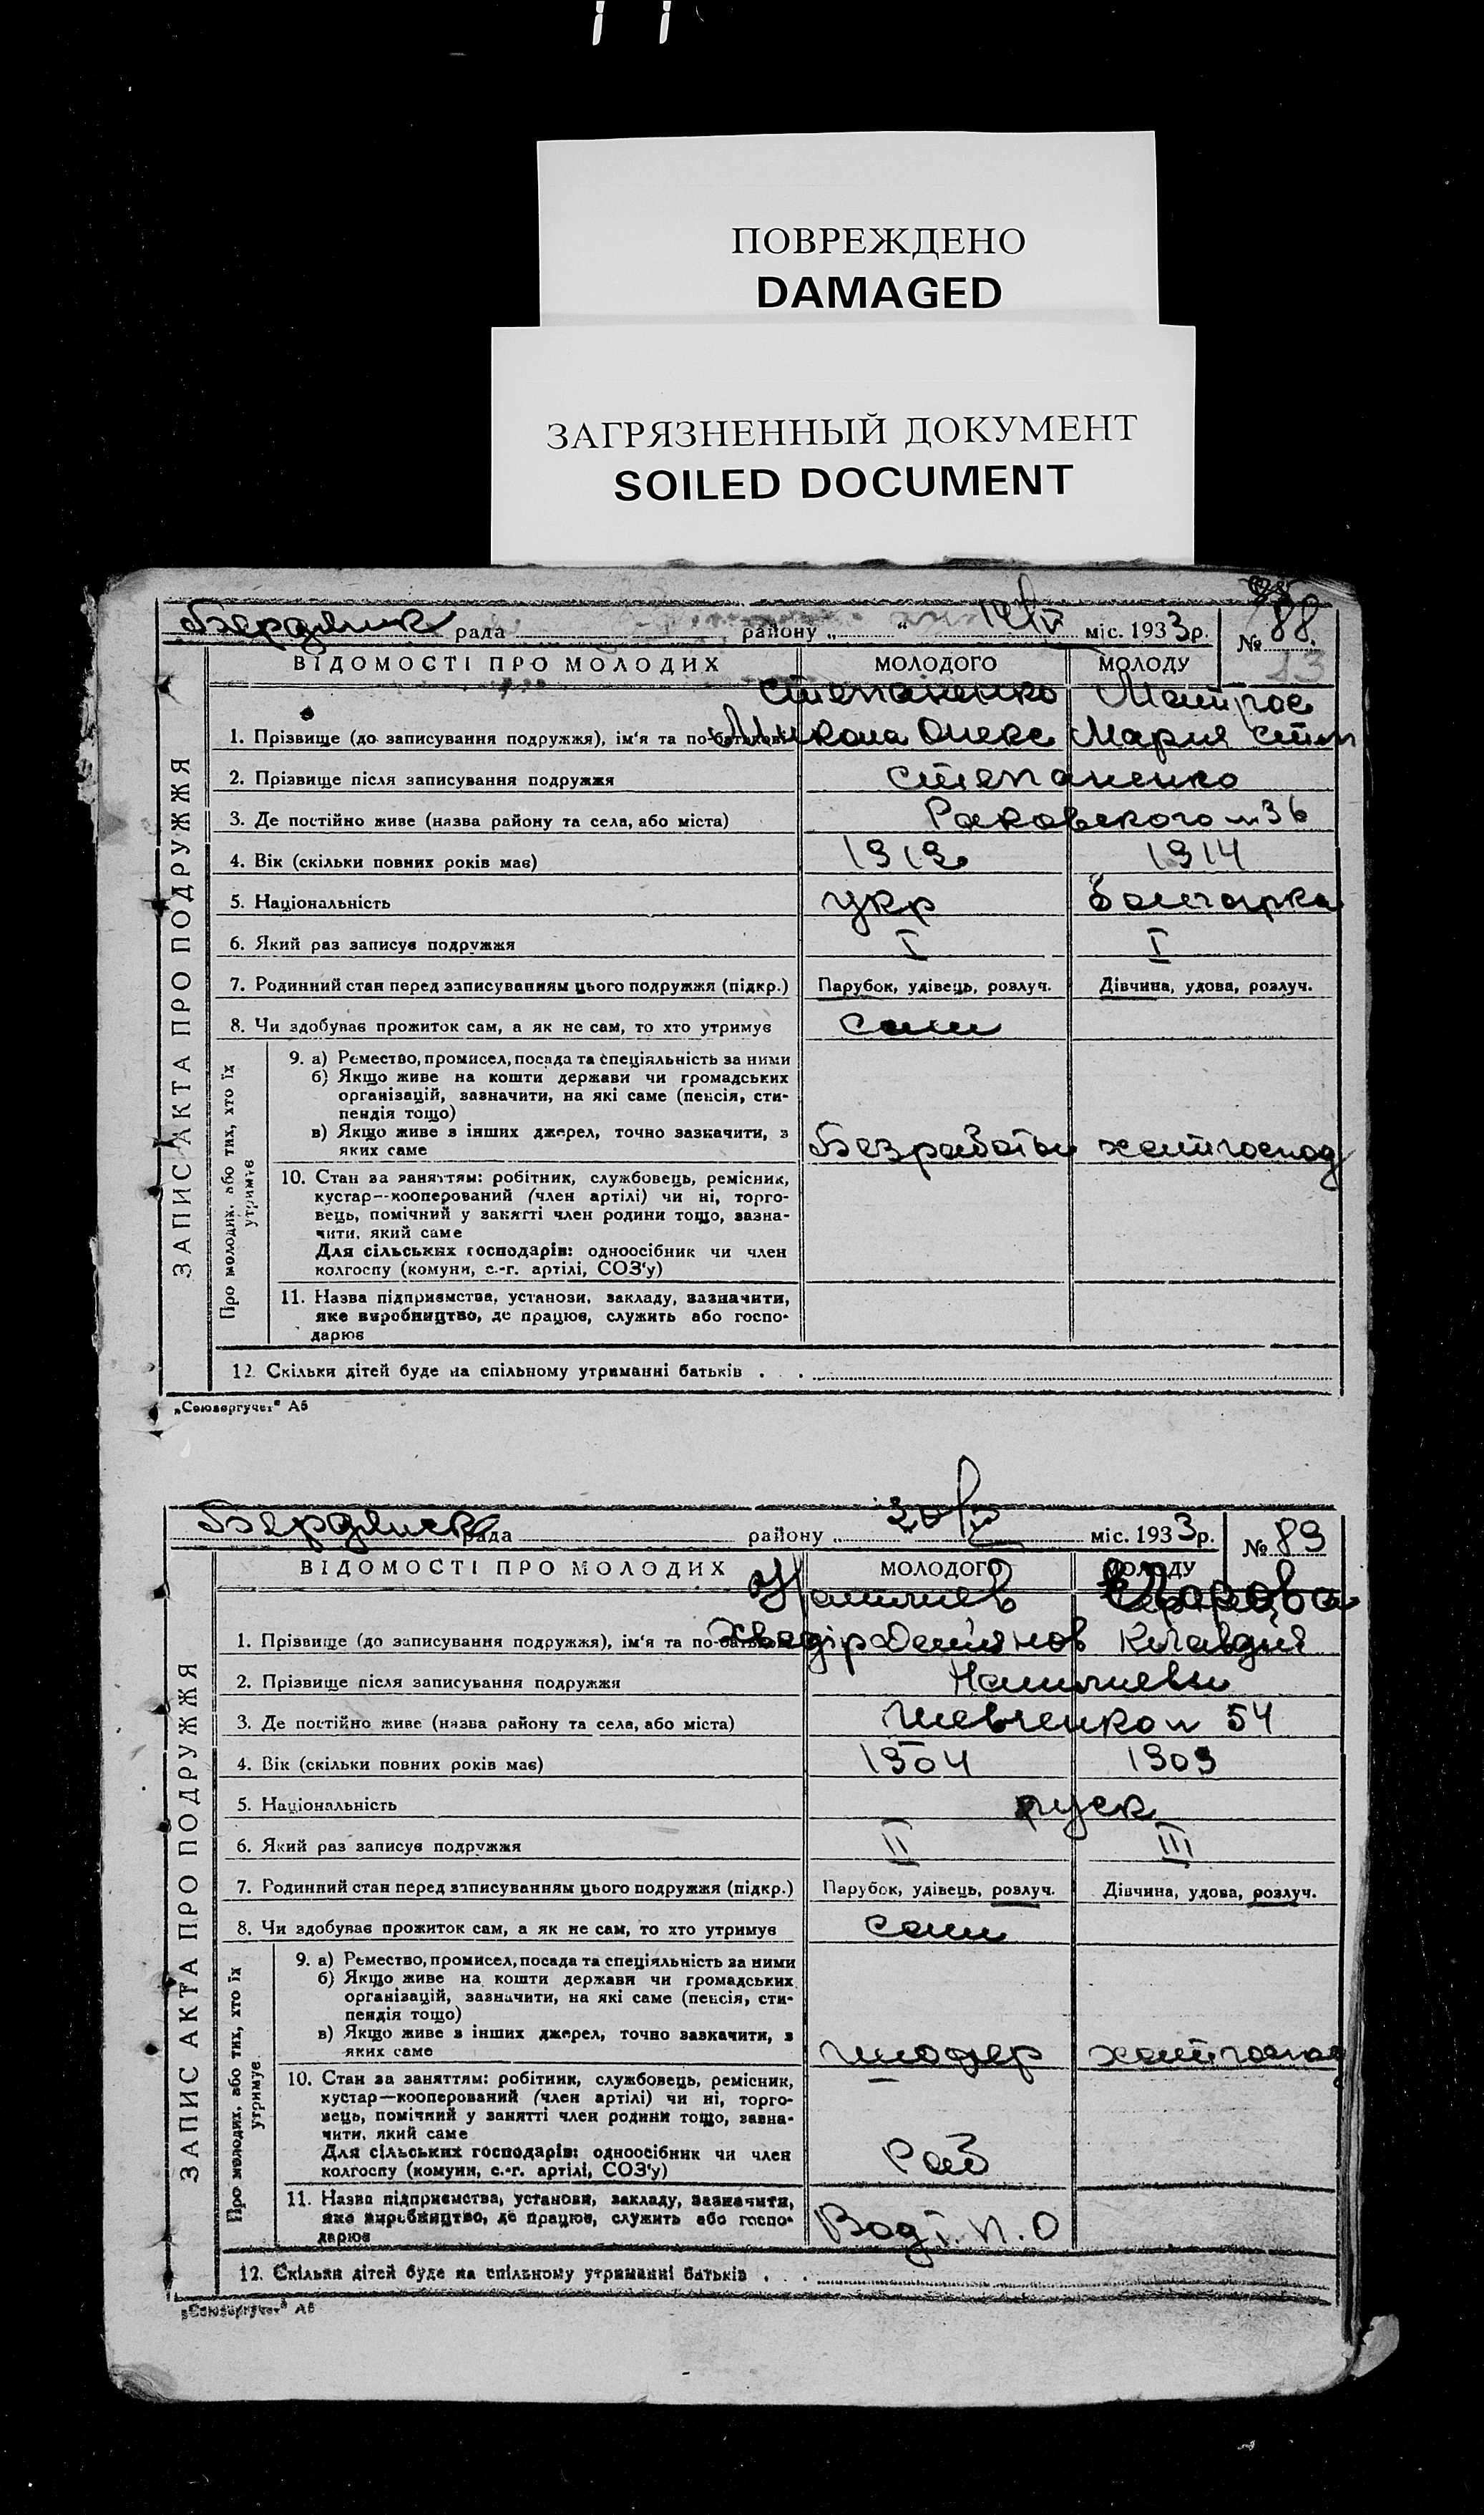 ПОВРЕЖДЕНО
DAMAGED
ЗАГРЯЗНЕННЫЙ ДОКУМЕНТ
SOILED DOCUMENT
Бердянск рада району „ “ міс. 1933р. № 88.
13
ВІДОМОСТІ ПРО МОЛОДИХ МОЛОДОГО МОЛОДУ
Степаненко
1. Прізвище (до записування подружжя), ім'я та по-батькові Микола Олекс Мария Степ
2. Прізвище після записування подружжя Степаненко
3. Де постійно живе (назва району та села, або міста) Раковского 36
4. Вік (скільки повних років має) 1912 1914
5. Національність укр болгарка
6. Який раз записує подружжя I I
7. Родинний стан перед записуванням цього подружжя (підкр.) Парубок, удівець, розлуч. Дівчина, удова, розлуч.
8. Чи здобуває прожиток сам, а як не сам, то хто утримує сам
9. а) Ремество, промисел, посада та спеціяльність за ними
б) Якщо живе на кошти держави чи громадських
організацій, зазначити, на які саме (пенсія, сти-
пендія тощо)
в) Якщо живе з інших джерел, точно зазначити, з
яких саме Безработн хатнгоспод
10. Стан за заняттям: робітник, службовець, ремісник,
кустар—кооперований (член артілі) чи ні, торго-
вець, помічний у занятті член родини тощо, зазна-
чити, який саме
Для сільських господарів: одноосібник чи член
колгоспу (комуни, с.-г. артілі, СОЗ'у)
11. Назва підприємства, установи, закладу, зазначити,
яке виробництво, де працює, служить або госпо-
дарює
12. Скільки дітей буде на спільному утриманні батьків
ЗАПИС АКТА ПРО ПОДРУЖЖЯ
Про молодих, або тих, хто їх
утримує
„Союзоргучет“ А5
Бердянск рада району „ міс. 1933р. № 89
ВІДОМОСТІ ПРО МОЛОДИХ МОЛОДОГО МОЛОДУ
1. Прізвище (до записування подружжя), ім'я та по-батькові Хведір Демянов Клавдия
2. Прізвище після записування подружжя
3. Де постійно живе (назва району та села, або міста) Шевченко 54
4. Вік (скільки повних років має) 1904 1909
5. Національність руск
6. Який раз записує подружжя II III
7. Родинний стан перед записуванням цього подружжя (підкр.) Парубок, удівець, розлуч. Дівчина, удова, розлуч.
8. Чи здобуває прожиток сам, а як не сам, то хто утримує сам
9. а) Ремество, промисел, посада та спеціяльність за ними
б) Якщо живе на кошти держави чи громадських
організацій, зазначити, на які саме (пенсія, сти-
пендія тощо)
в) Якщо живе з інших джерел, точно зазначити, з
яких саме шофер хатнгоспод
10. Стан за заняттям: робітник, службовець, ремісник,
кустар—кооперований (член артілі) чи ні, торго-
вець, помічний у занятті член родини тощо, зазна-
чити, який саме
Для сільських господарів: одноосібник чи член
колгоспу (комуни, с.-г. артілі, СОЗ'у) Раб
11. Назва підприємства, установи, закладу, зазначити,
яке виробництво, де працює, служить або госпо-
дарює
12. Скільки дітей буде на спільному утриманні батьків
ЗАПИС АКТА ПРО ПОДРУЖЖЯ
Про молодих, або тих, хто їх
утримує
„Союзоргучет“ А5